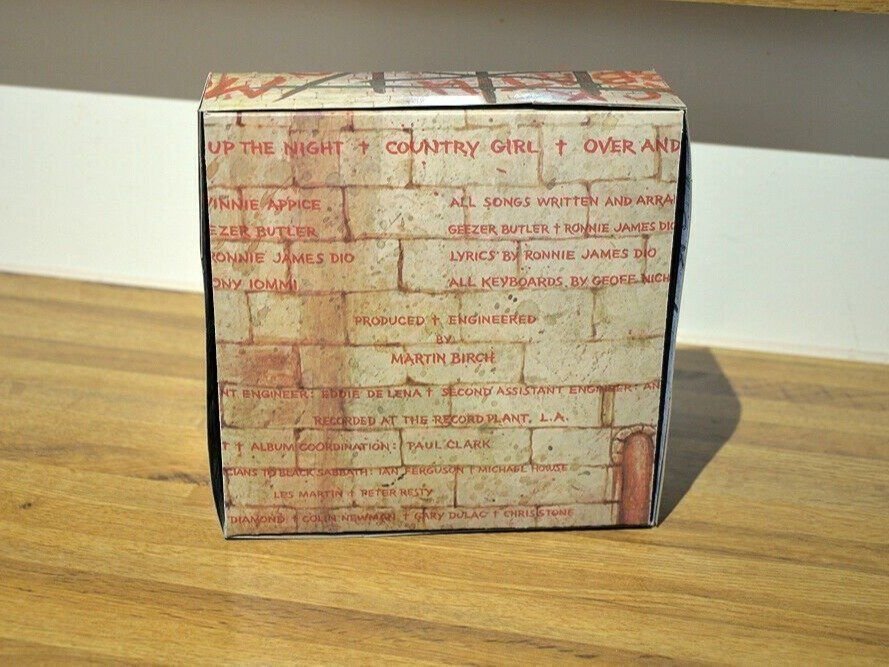 UP THE NIGHT † COUNTRY GIRL † OVER AND
VINNIE APPICE
ALL SONGS WRITTEN AND ARRA
EZER BUTLER
GEEZER BUTLER † RONNIE JAMES DIO
RONNIE JAMES DIO
LYRICS BY RONNIE JAMES DIO
ONY IOMMI
ALL KEYBOARDS BY GEOFF NICH
PRODUCED † ENGINEERED
BY
MARTIN BIRCH
NT ENGINEER: EDDIE DE LENA † SECOND ASSISTANT ENGINEER: AN
RECORDED AT THE RECORD PLANT, L.A.
T † ALBUM COORDINATION: PAUL CLARK
CIANS TO BLACK SABBATH: IAN FERGUSON † MICHAEL HOWSE
LES MARTIN † PETER RESTY
DIAMOND † COLIN NEWMAN † GARY DULAC † CHRIS STONE